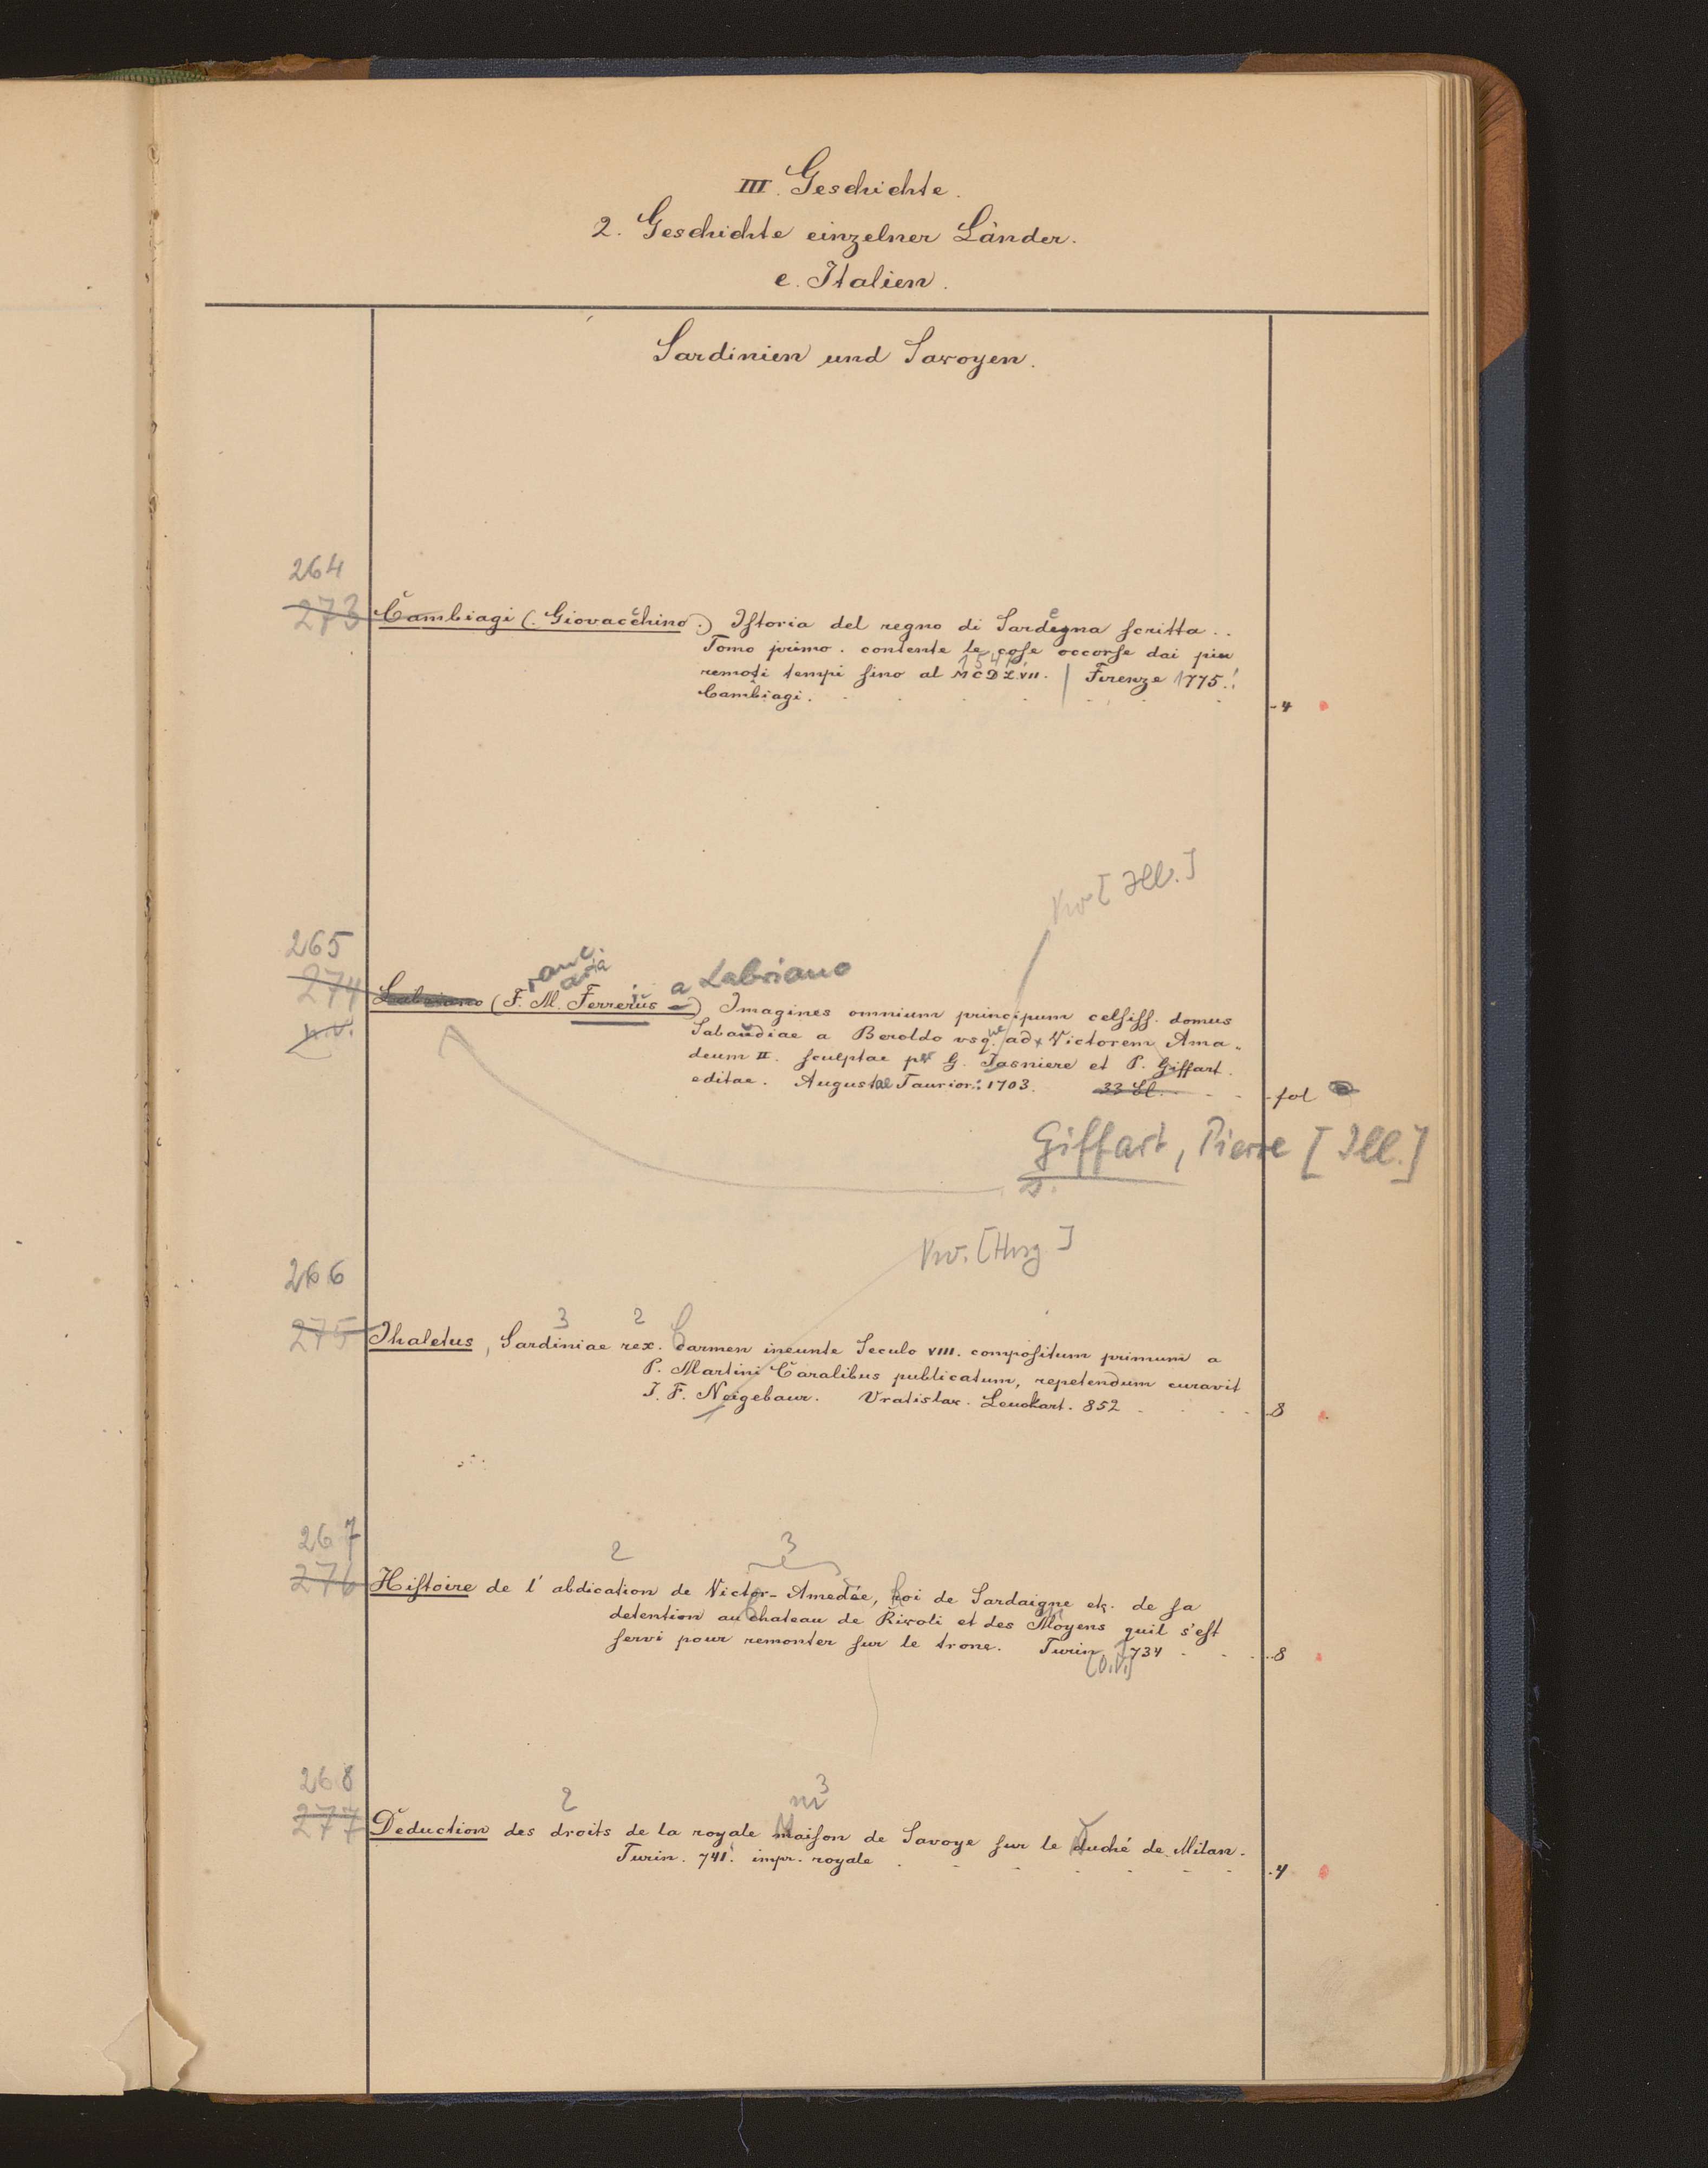 III. Geschichte.
2. Geschichte einzelner Länder.
e. Italien.
Sardinien und Savoyen.
264
273 Cambiagi (. Giovacchino .) Istoria del regno di Sardegna scritta ..
Tomo primo. contente le cose occorse dai piu
remoti tempi sino al MCDZVII. | Firenze 1775.
Cambiagi. - 4
Vw [Ill.]
265
274 Labriano (F. M. Ferrerius a Labriano) Imagines omnium principum celsiss. domus
n.v. Sabaudiae a Beroldo vsq. ad Victorem Ama-
deum II. sculptae per G. Tasniere et P. Giffart.
editae. Augustae Taurior. 1703. 33 Bl. fol
Giffart, Pierre [Ill.]
s.
Vw. [Hrsg]
266
275 Ihaletus, Sardiniae rex. Carmen ineunte Seculo VIII. compositum primum a
P. Martini Caralibus publicatum, repetendum curavit
I. F. Neigebaur. Vratislav. Leuckart. 852 8
267
2 3
276 Histoire de l' abdication de Victor-Amedée, roi de Sardaigne etc. de sa
detention au chateau de Rivoli et des Moyens quil s'est
servi pour remonter sur le trone. Turin 1734 8
[o.V.]
268
2 m 3
277 Deduction des droits de la royale maison de Savoye sur le duché de Milan.
Turin. 741. impr. royale 4